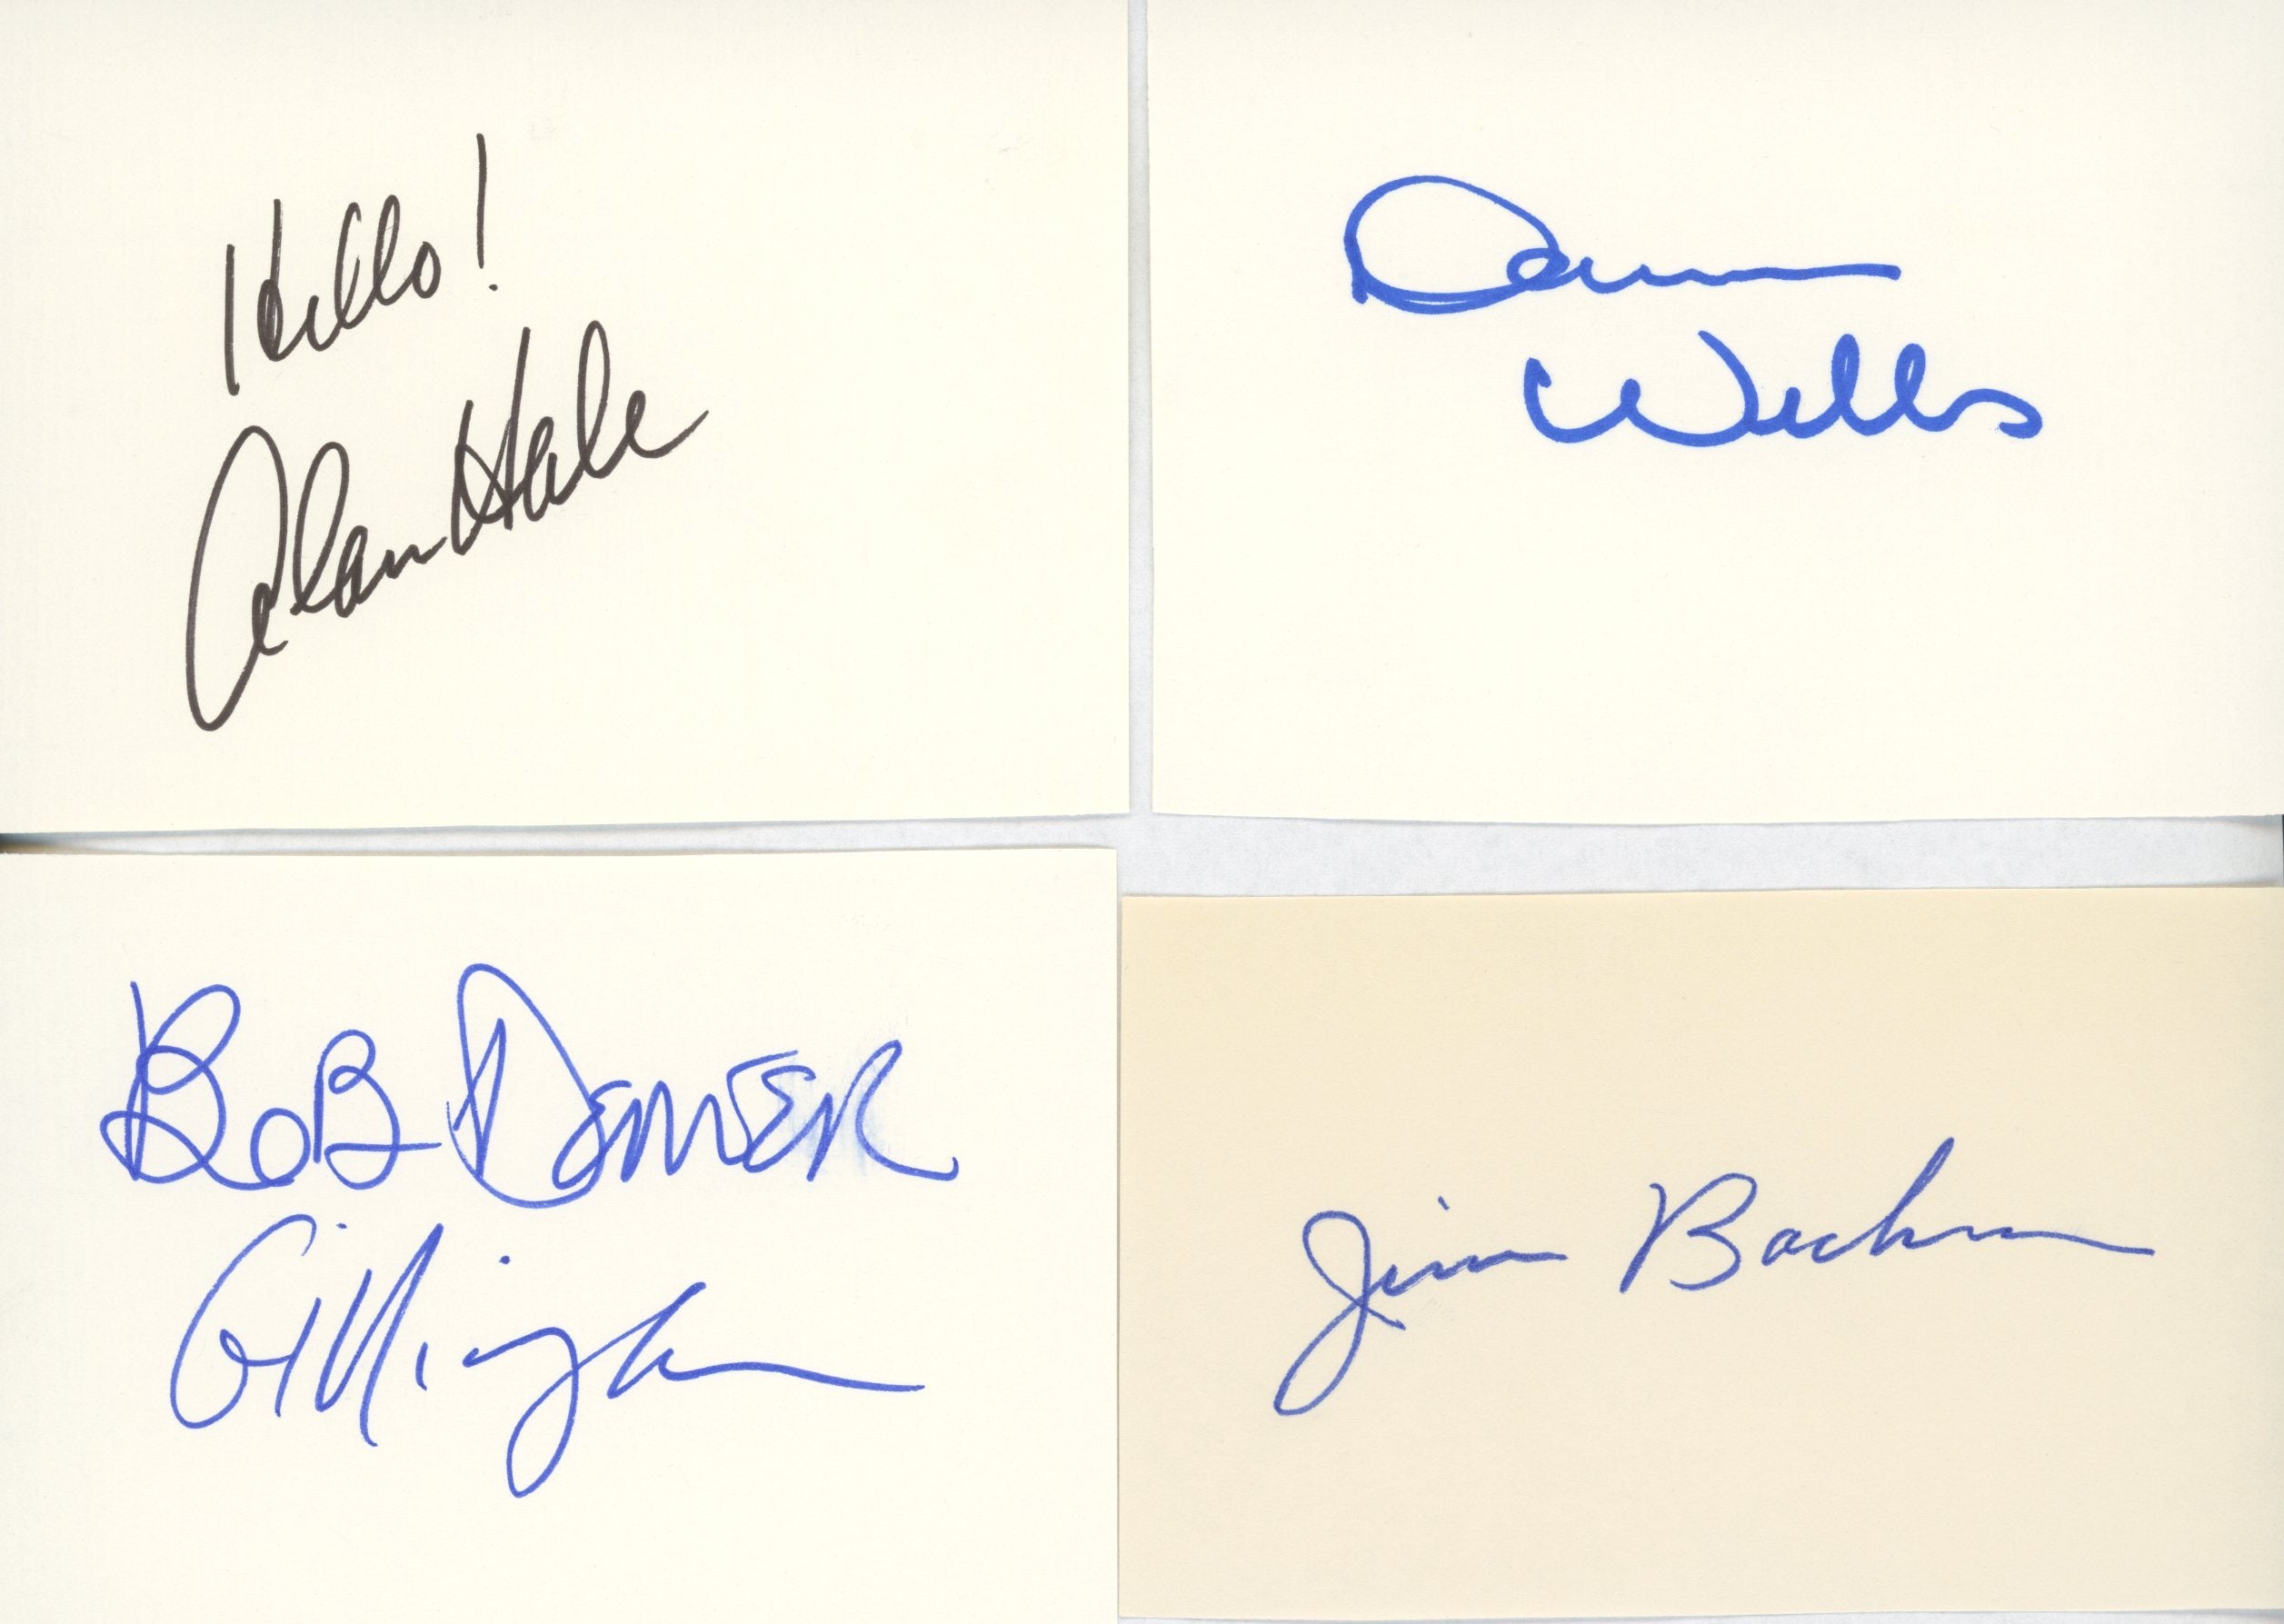 Hello!
Alan Hale
Dawn
Wells
Bob Denver
Gilligan
Jim Backus